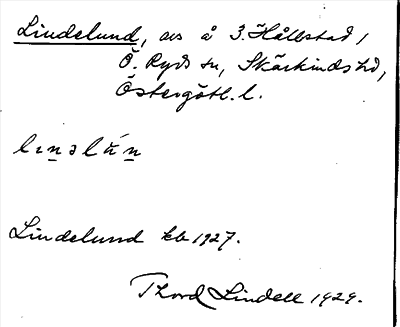 Lindelund, avs å 3. Hållstad 1
Ö. Ryds sn, Skärkinds hd,
Östergötl. l.
Lindelund kb 1927.
Thord Lindell 1929.